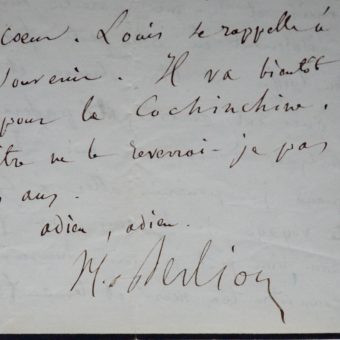 coeur. Louis se rappelle à
souvenir. Il va bientôt
pour la Cochinchine.
être ne le reverrai-je pas
s ans.
adieu, adieu.
H. Berlioz